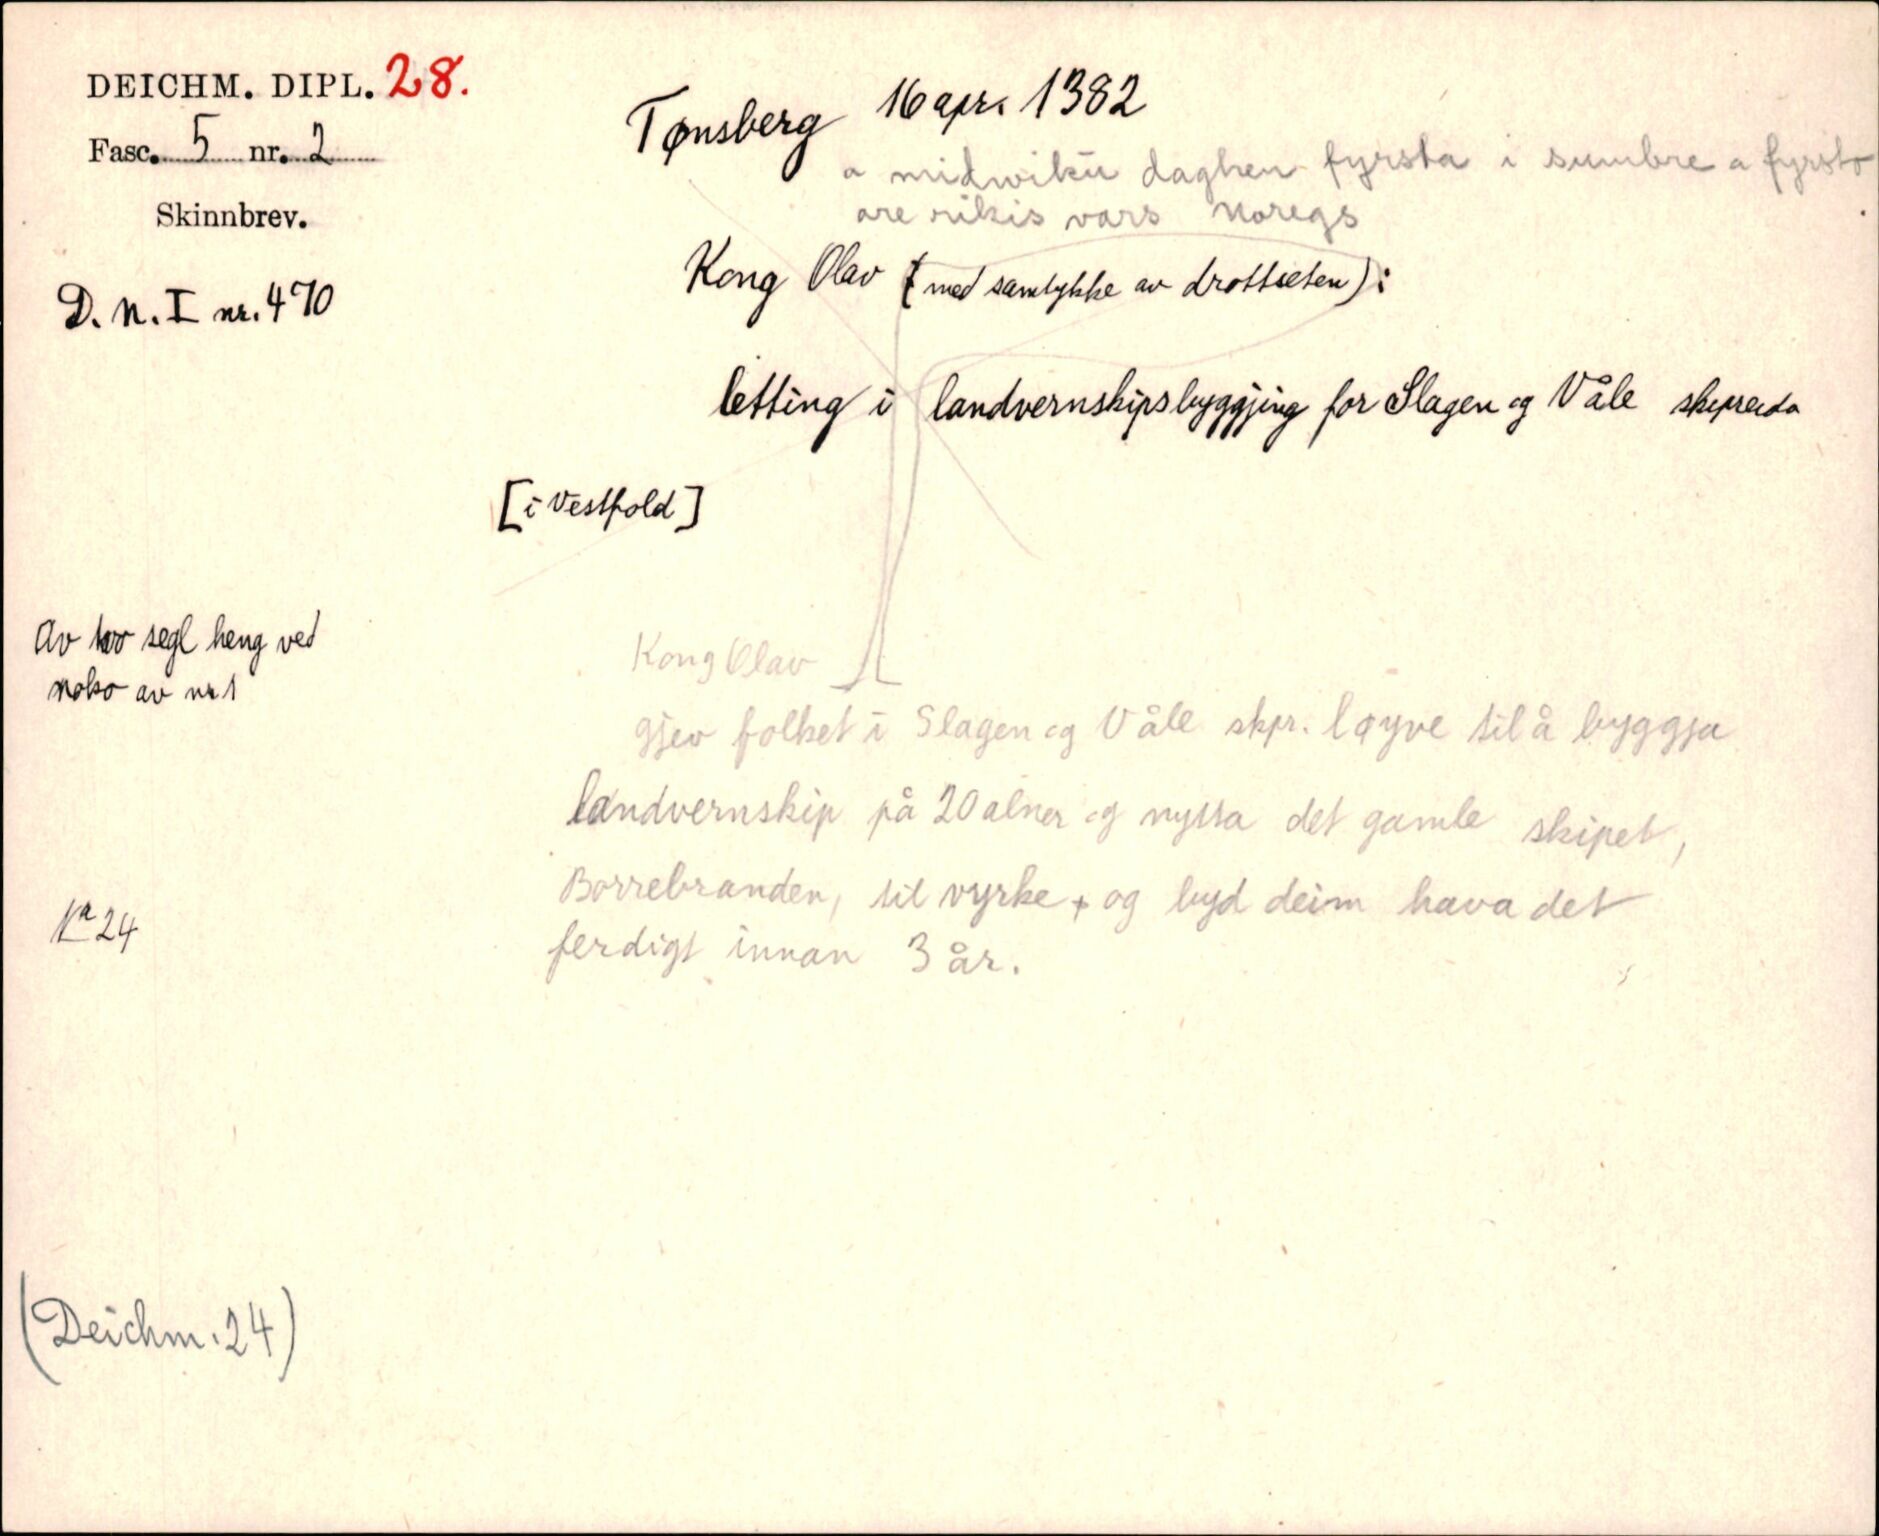 DEICHM. DIPL. 28.
Fasc. 5 nr. 2
Skinnbrev.
D. N. I nr. 470
Tønsberg 16 apr. 1382
a midwiku daghen fyrsta i sumbre a fyrsto
are rikis vars Noregs
Kong Olav (med samtykke av drottseten):
letting i landvernskipsbyggjing for Slagen og Våle skipreida
[i Vestfold]
Av two segl heng ved
noko av nr 1
Kong Olav
gjev folket i Slagen og Våle skpr. løyve til å byggja
landvernskip på 20 alner og nytta det gamle skipet,
Borrebranden, til vyrke, og byd deim hava det
ferdigt innan 3 år.
1a 24
(Deichm. 24)